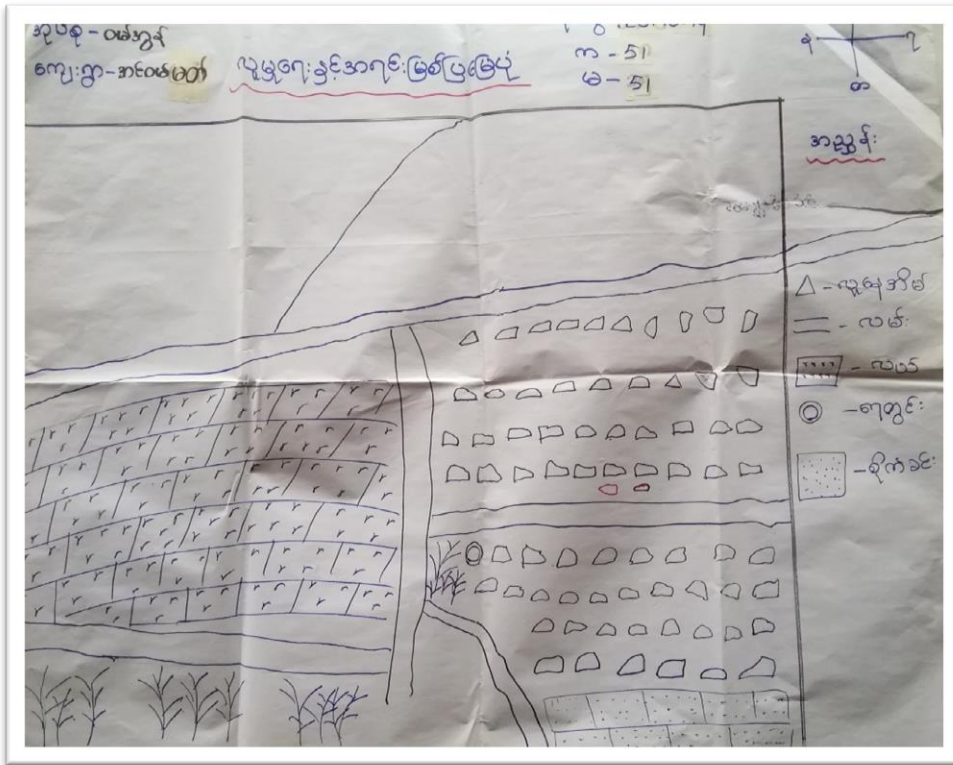 အုပ်စု - ဝမ်အွန်
ကျေးရွာ - အင်ဝမ်မတ်
လူမှုရေးနှင့်အရင်းမြစ်ပြမြေပုံ
က - 51
မ - 51
န
တ
အညွှန်း
- လူနေအိမ်
- လမ်း
- လယ်
- ရေတွင်း
- စိုက်ခင်း